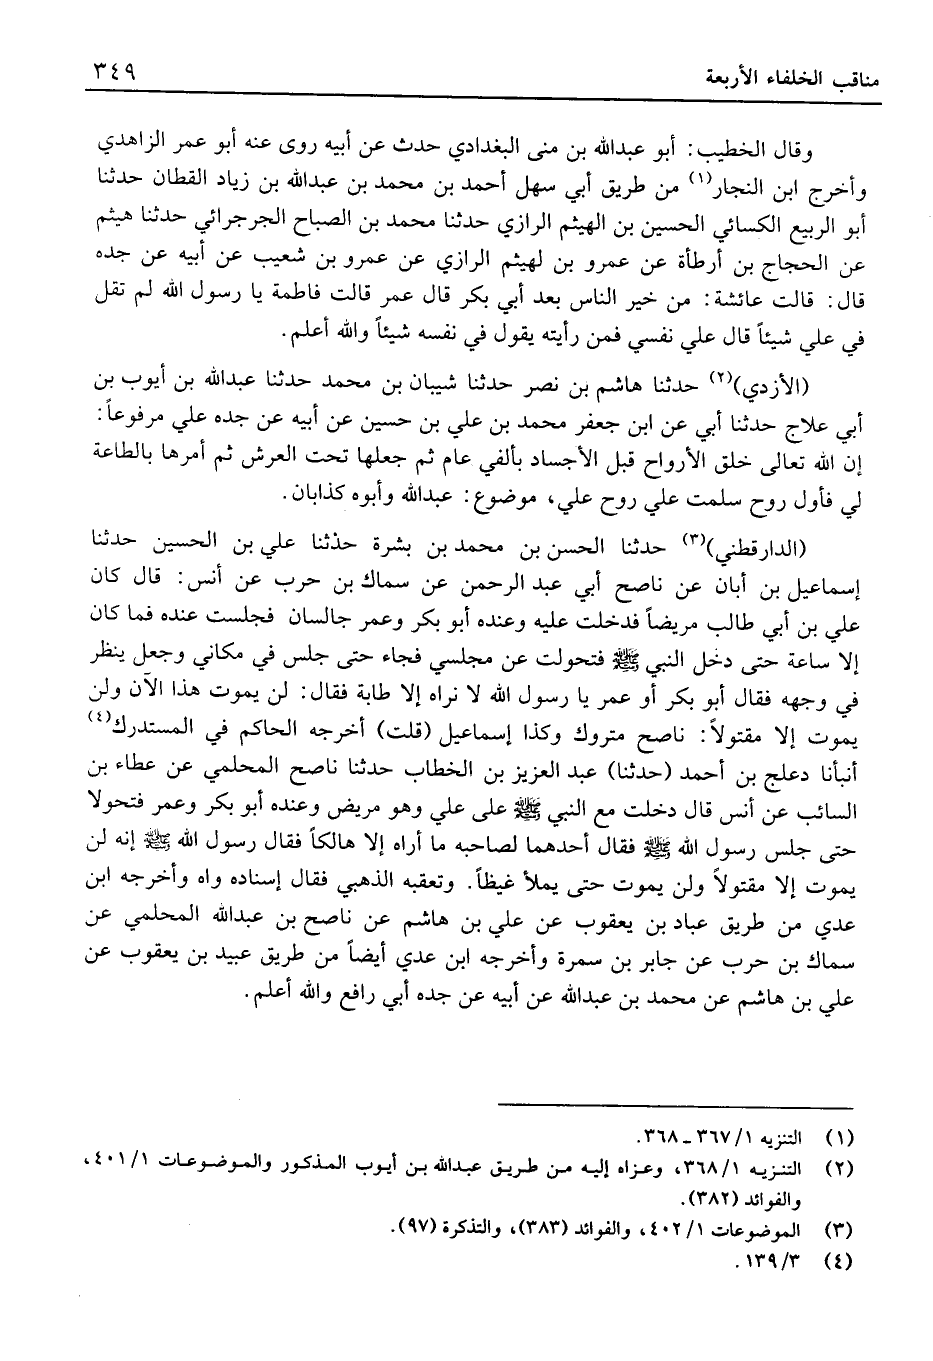 مناقب الخلفاء الأربعة ٣٤٩
وقال الخطيب: أبو عبدالله بن منى البغدادي حدث عن أبيه روى عنه أبو عمر الزاهدي
وأخرج ابن النجار(١) من طريق أبي سهل أحمد بن محمد بن عبدالله بن زياد القطان حدثنا
أبو الربيع الكسائي الحسين بن الهيثم الرازي حدثنا محمد بن الصباح الجرجرائي حدثنا هيثم
عن الحجاج بن أرطأة عن عمرو بن لهيثم الرازي عن عمرو بن شعيب عن أبيه عن جده
قال: قالت عائشة: من خير الناس بعد أبي بكر قال عمر قالت فاطمة يا رسول الله لم تقل
في علي شيئاً قال علي نفسي فمن رأيته يقول في نفسه شيئاً والله أعلم.
(الأزدي)(٢) حدثنا هاشم بن نصر حدثنا شيبان بن محمد حدثنا عبدالله بن أيوب بن
أبي علاج حدثنا أبي عن ابن جعفر محمد بن علي بن حسين عن أبيه عن جده علي مرفوعاً:
إن الله تعالى خلق الأرواح قبل الأجساد بألفي عام ثم جعلها تحت العرش ثم أمرها بالطاعة
لي فأول روح سلمت علي روح علي، موضوع: عبدالله وأبوه كذابان.
(الدارقطني)(٣) حدثنا الحسن بن محمد بن بشرة حذثنا علي بن الحسين حدثنا
إسماعيل بن أبان عن ناصح أبي عبد الرحمن عن سماك بن حرب عن أنس: قال كان
علي بن أبي طالب مريضاً فدخلت عليه وعنده أبو بكر وعمر جالسان فجلست عنده فما كان
إلا ساعة حتى دخل النبي ﷺ فتحولت عن مجلسي فجاء حتى جلس في مكاني وجعل ينظر
في وجهه فقال أبو بكر أو عمر يا رسول الله لا نراه إلا طابة فقال: لن يموت هذا الآن ولن
يموت إلا مقتولاً: ناصح متروك وكذا إسماعيل (قلت) أخرجه الحاكم في المستدرك(٤)
أنبأنا دعلج بن أحمد (حدثنا) عبد العزيز بن الخطاب حدثنا ناصح المحلمي عن عطاء بن
السائب عن أنس قال دخلت مع النبي ﷺ على علي وهو مريض وعنده أبو بكر وعمر فتحولا
حتى جلس رسول الله ﷺ فقال أحدهما لصاحبه ما أراه إلا هالكاً فقال رسول الله ﷺ إنه لن
يموت إلا مقتولاً ولن يموت حتى يملأ غيظاً. وتعقبه الذهبي فقال إسناده واه وأخرجه ابن
عدي من طريق عباد بن يعقوب عن علي بن هاشم عن ناصح بن عبدالله المحلمي عن
سماك بن حرب عن جابر بن سمرة وأخرجه ابن عدي أيضاً من طريق عبيد بن يعقوب عن
علي بن هاشم عن محمد بن عبدالله عن أبيه عن جده أبي رافع والله أعلم.
(١) التنزيه ١/ ٣٦٧ ـ ٣٦٨.
(٢) التنزيه ١/ ٣٦٨، وعزاه إليه من طريق عبدالله بن أيوب المذكور والموضوعات ١/ ٤٠١،
والفوائد (٣٨٢).
(٣) الموضوعات ١/ ٤٠٢، والفوائد (٣٨٣)، والتذكرة (٩٧).
(٤) ٣/ ١٣٩.